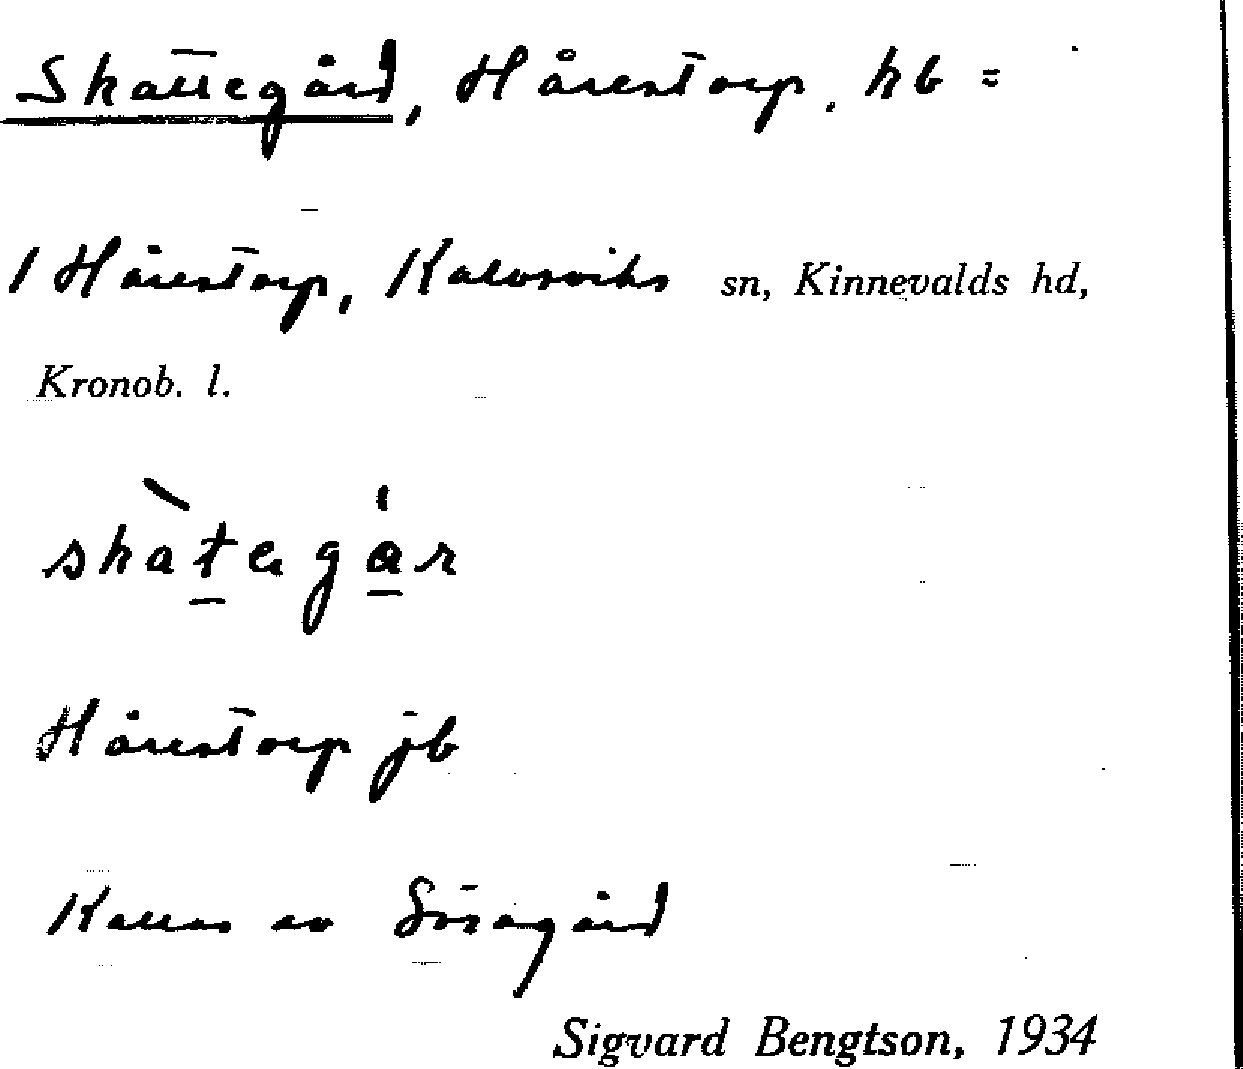 Skattegård, Hårestorp. hb =
1 Hårestorp, Kalvsviks sn, Kinnevalds hd,
Kronob. l.
skàtegár
Hårestorp jb
Kallas av Söragård
Sigvard Bengtson, 1934